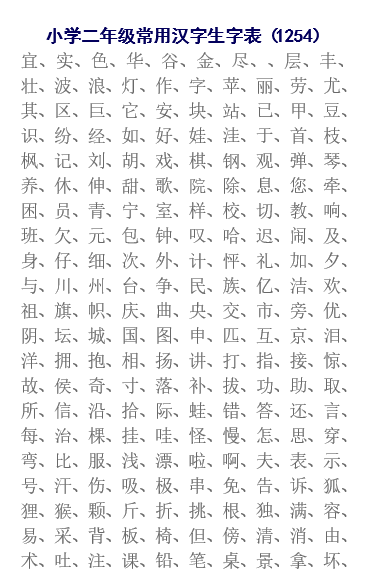 小学二年级常用汉字生字表（1254）
宜、实、色、华、谷、金、尽、、层、丰、
壮、波、浪、灯、作、字、苹、丽、劳、尤、
其、区、巨、它、安、块、站、已、甲、豆、
识、纷、经、如、好、娃、洼、于、首、枝、
枫、记、刘、胡、戏、棋、钢、观、弹、琴、
养、休、伸、甜、歌、院、除、息、您、牵、
困、员、青、宁、室、样、校、切、教、响、
班、欠、元、包、钟、叹、哈、迟、闹、及、
身、仔、细、次、外、计、怦、礼、加、夕、
与、川、州、台、争、民、族、亿、洁、欢、
祖、旗、帜、庆、曲、央、交、市、旁、优、
阴、坛、城、国、图、申、匹、互、京、泪、
洋、拥、抱、相、扬、讲、打、指、接、惊、
故、侯、奇、寸、落、补、拔、功、助、取、
所、信、沿、拾、际、蛙、错、答、还、言、
每、治、棵、挂、哇、怪、慢、怎、思、穿、
弯、比、服、浅、漂、啦、啊、夫、表、示、
号、汗、伤、吸、极、串、免、告、诉、狐、
狸、猴、颗、斤、折、挑、根、独、满、容、
易、采、背、板、椅、但、傍、清、消、由、
术、吐、注、课、铅、笔、桌、景、拿、坏、